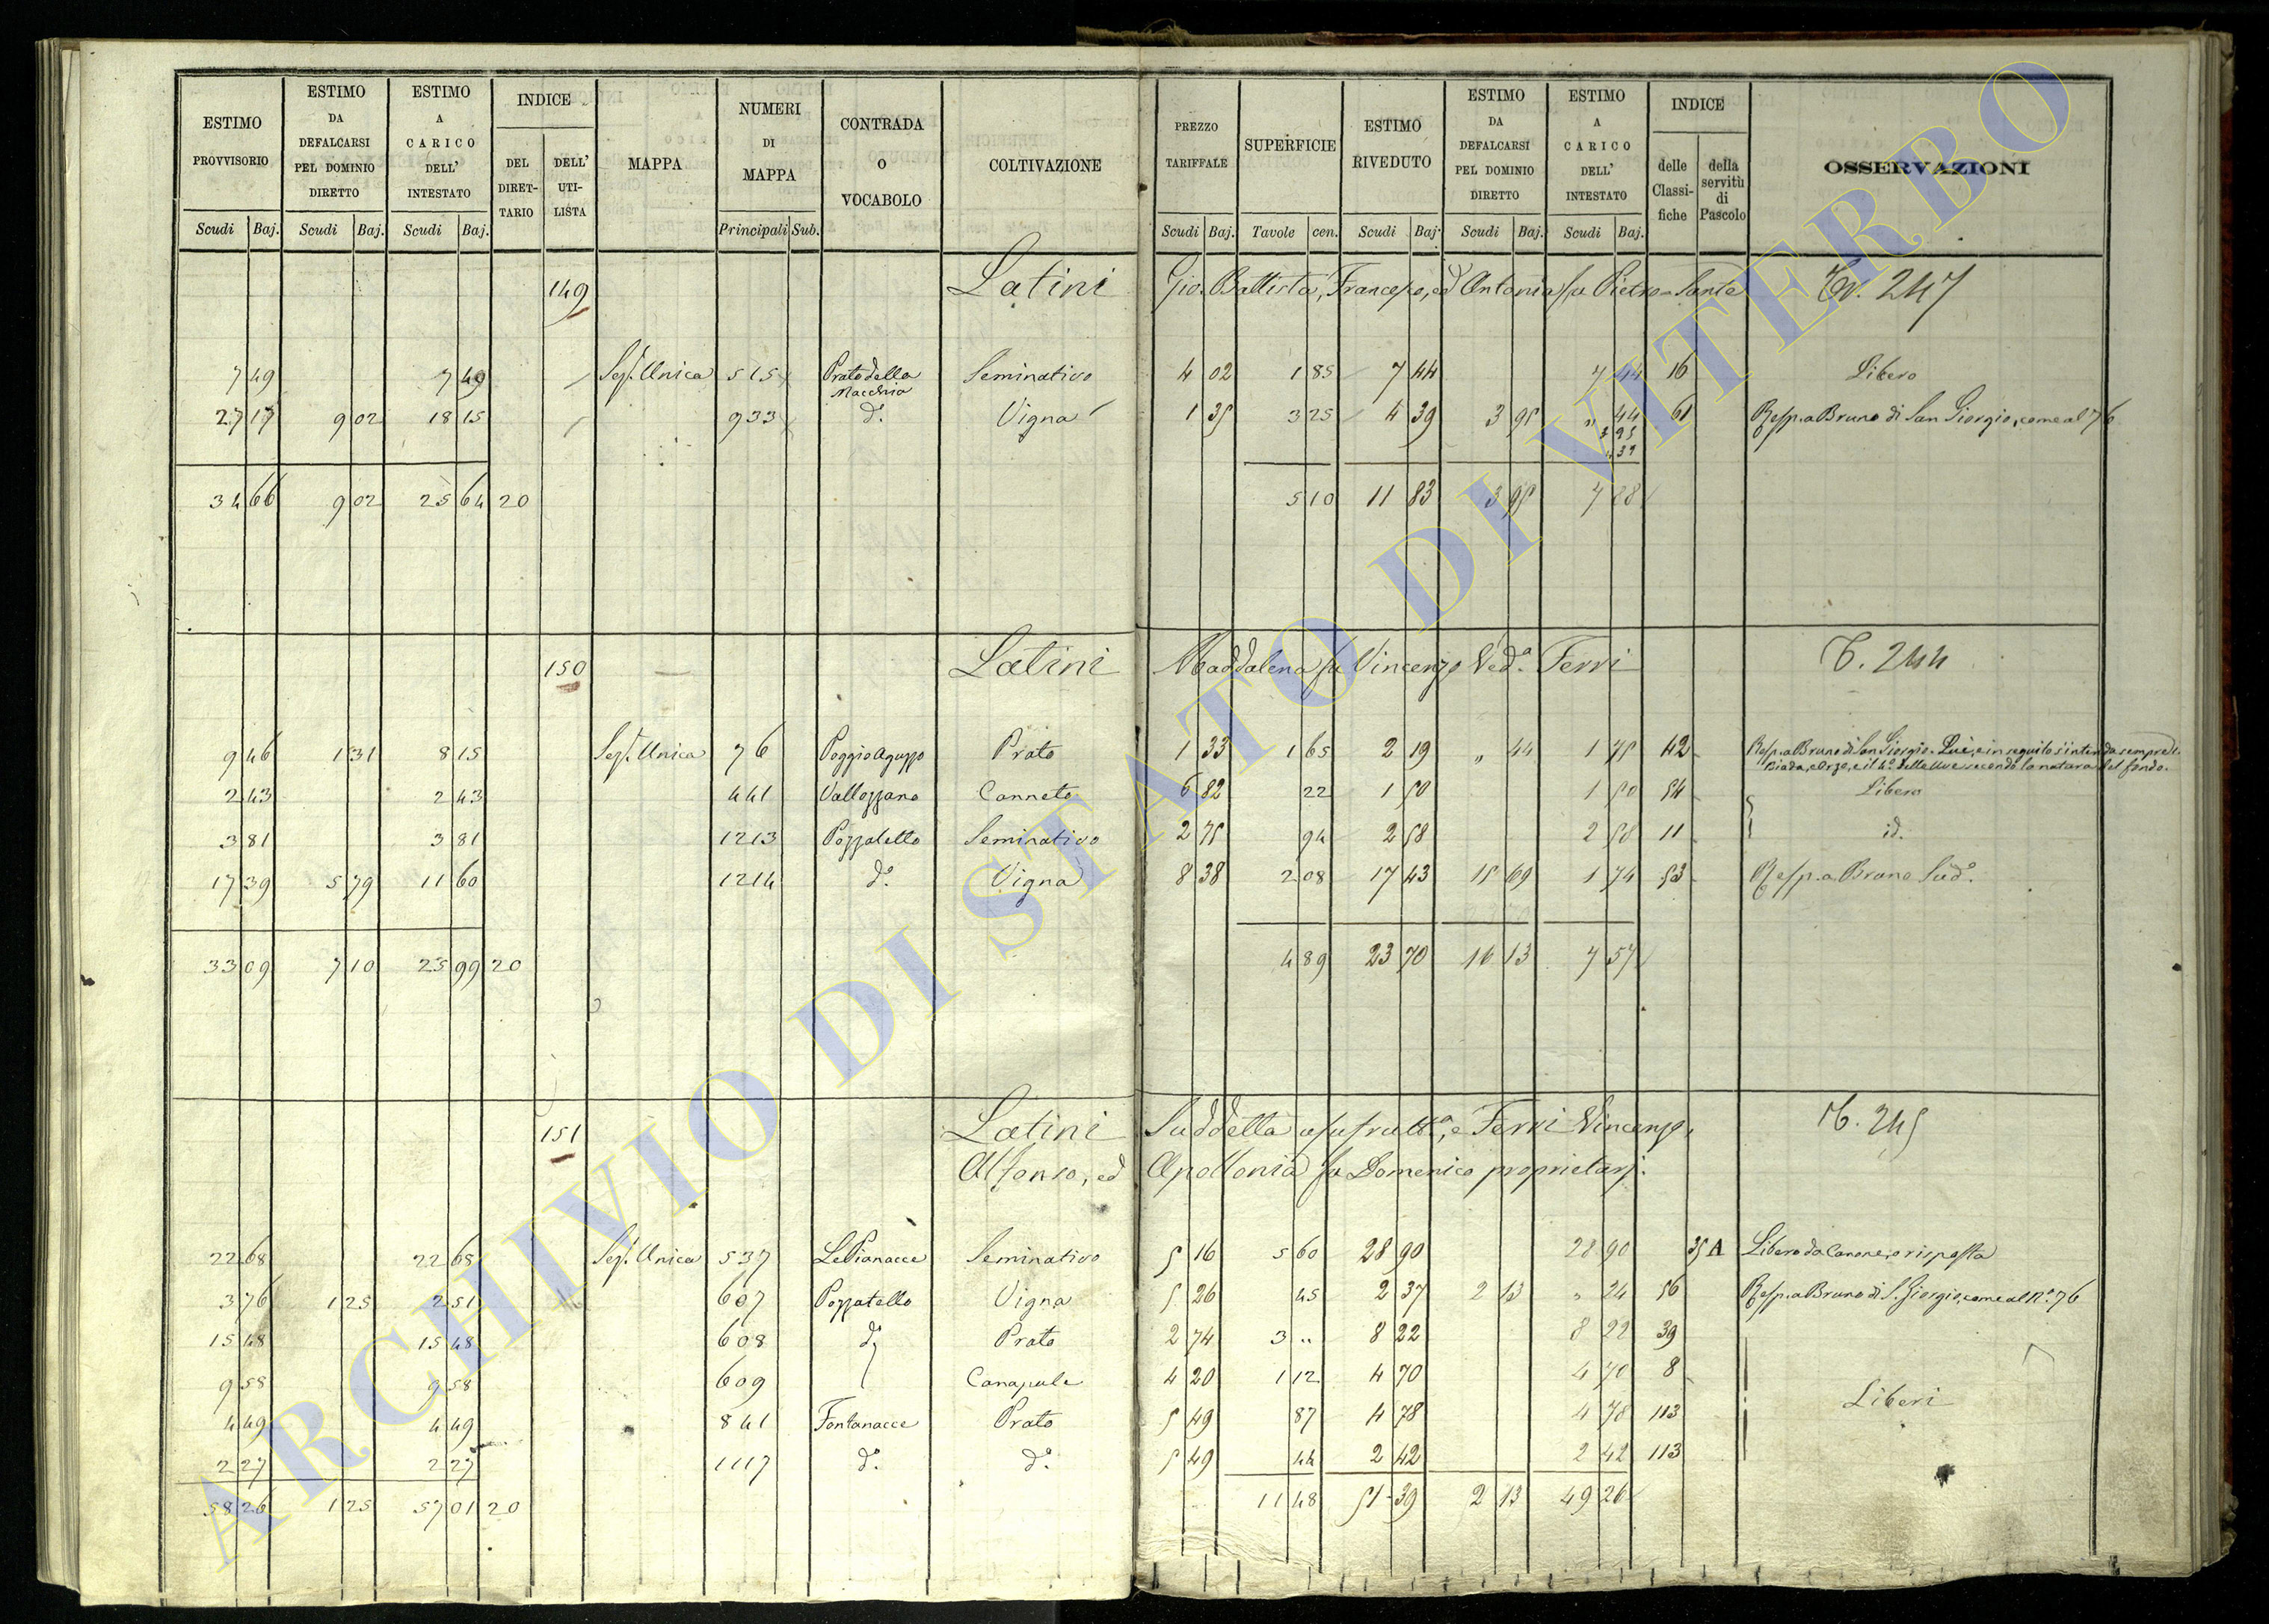 ESTIMO PROVVISORIO | ESTIMO DA DEFALCARSI PEL DOMINIO DIRETTO | ESTIMO A CARICO DELL' INTESTATO | INDICE | MAPPA | NUMERI DI MAPPA | CONTRADA O VOCABOLO | COLTIVAZIONE | PREZZO TARIFFALE | SUPERFICIE | ESTIMO RIVEDUTO | ESTIMO DA DEFALCARSI PEL DOMINIO DIRETTO | ESTIMO A CARICO DELL' INTESTATO | INDICE | OSSERVAZIONI
DEL DIRET-TARIO | DELL' UTI-LISTA | delle Classi-fiche | della servitù di Pascolo
Scudi | Baj. | Scudi | Baj. | Scudi | Baj. | Principali | Sub. | Scudi | Baj. | Tavole | cen. | Scudi | Baj. | Scudi | Baj. | Scudi | Baj.
149 Latini Gio. Battista, Francesco, ed Antonia fu Pietro-Sante 247
7 49 | 7 49 | Sez. Unica | 515 | Prato della Macchia | Seminativo | 4 02 | 1 85 | 7 44 | 7 44 | 16 | Libero
27 17 | 9 02 | 18 15 | 933 | d.o | Vigna | 1 35 | 3 25 | 4 39 | 3 95 | " 44 | 61 | Resp. a Bruno di San Giorgio, come al 76
3 95
4 39
34 66 | 9 02 | 25 64 | 20 | 5 10 | 11 83 | 3 95 | 7 88
150 Latini Maddalena fu Vincenzo Ved.a Ferri T. 244
9 46 | 1 31 | 8 15 | Sez. Unica | 76 | Poggio Aguzzo | Prato | 1 33 | 1 65 | 2 19 | " 44 | 1 75 | 42 | Resp. a Bruno di San Giorgio. Qui, e in seguito s'intenda sempre di
Biada, e Orzo, e il 4.o delle Uve secondo la natura del fondo.
2 43 | 2 43 | 441 | Vallozzano | Canneto | 6 82 | 22 | 1 50 | 1 50 | 54 | Libero
3 81 | 3 81 | 1213 | Pozzatello | Seminativo | 2 75 | 94 | 2 58 | 2 58 | 11 | id.
17 39 | 5 79 | 11 60 | 1214 | d.o | Vigna | 8 38 | 2 08 | 17 43 | 15 69 | 1 74 | 53 | Resp. a Bruno Sud.o
33 09 | 7 10 | 25 99 | 20 | 4 89 | 23 70 | 16 13 | 7 57
151 Latini Suddetta usufrutt.a, e Ferri Vincenzo, 245
Alfonso, ed Apollonia fu Domenico proprietarj.
22 68 | 22 68 | Sez. Unica | 537 | Le Pianacce | Seminativo | 5 16 | 5 60 | 28 90 | 28 90 | 35 A | Libero da Canone, o risposta
3 76 | 1 25 | 2 51 | 607 | Pozzatello | Vigna | 5 26 | 45 | 2 37 | 2 13 | " 24 | 56 | Resp. a Bruno di S. Giorgio, come al N.o 76
15 48 | 15 48 | 608 | d.o | Prato | 2 74 | 3 " | 8 22 | 8 22 | 39
9 58 | 9 58 | 609 | Canapule | 4 20 | 1 12 | 4 70 | 4 70 | 8
4 49 | 4 49 | 841 | Fontanacce | Prato | 5 49 | 87 | 4 78 | 4 78 | 113 | Liberi
2 27 | 2 27 | 1117 | d.o | d.o | 5 49 | 44 | 2 42 | 2 42 | 113
58 26 | 1 25 | 57 01 | 20 | 11 48 | 51 39 | 2 13 | 49 26
ARCHIVIO DI STATO DI VITERBO